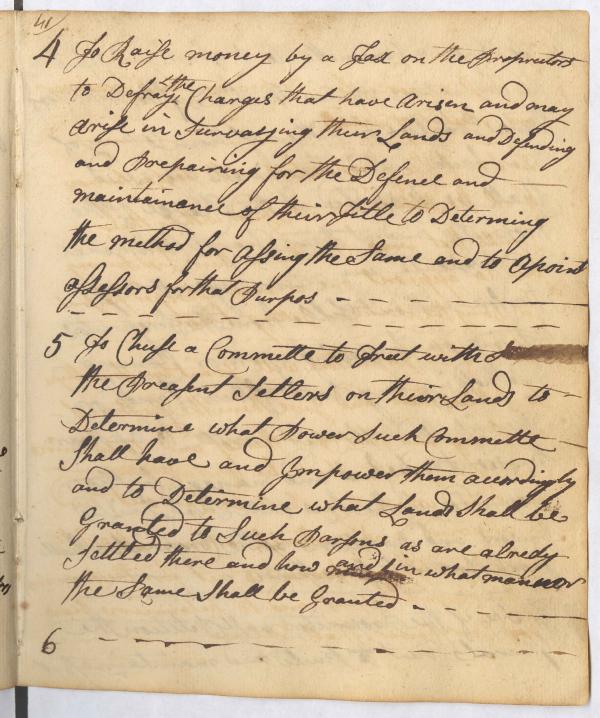 41
4 To Raise money by a Tax on the Proprietors
to Defray the Charges that have arisen and may
arise in Survaijing their Lands and Defending
and Prepairing for the Defence and
maintainance of their Title to Determing
the method for assing the Same and to apoint
assessors for that Purpos
5 To Chuse a Commette to Treet with
the Preasent Setlers on their Lands to
Determine what Power Such Commette
Shall have and Impower them acordingly
and to Determine what Lands Shall be
Granted to Such Parsons as are alredy
Settled there and how and in what mannor
the Same Shall be Granted
6